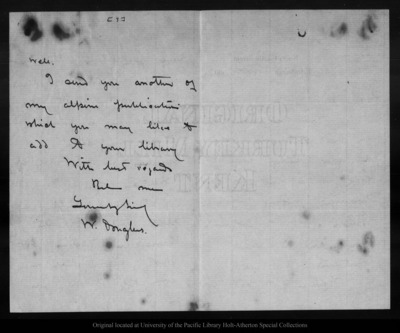 well.
I send you another of
my alpine publications
which you may like to
add to your library
With best regards
W. Douglas.
Original located at University of the Pacific Library Holt-Atherton Special Collections